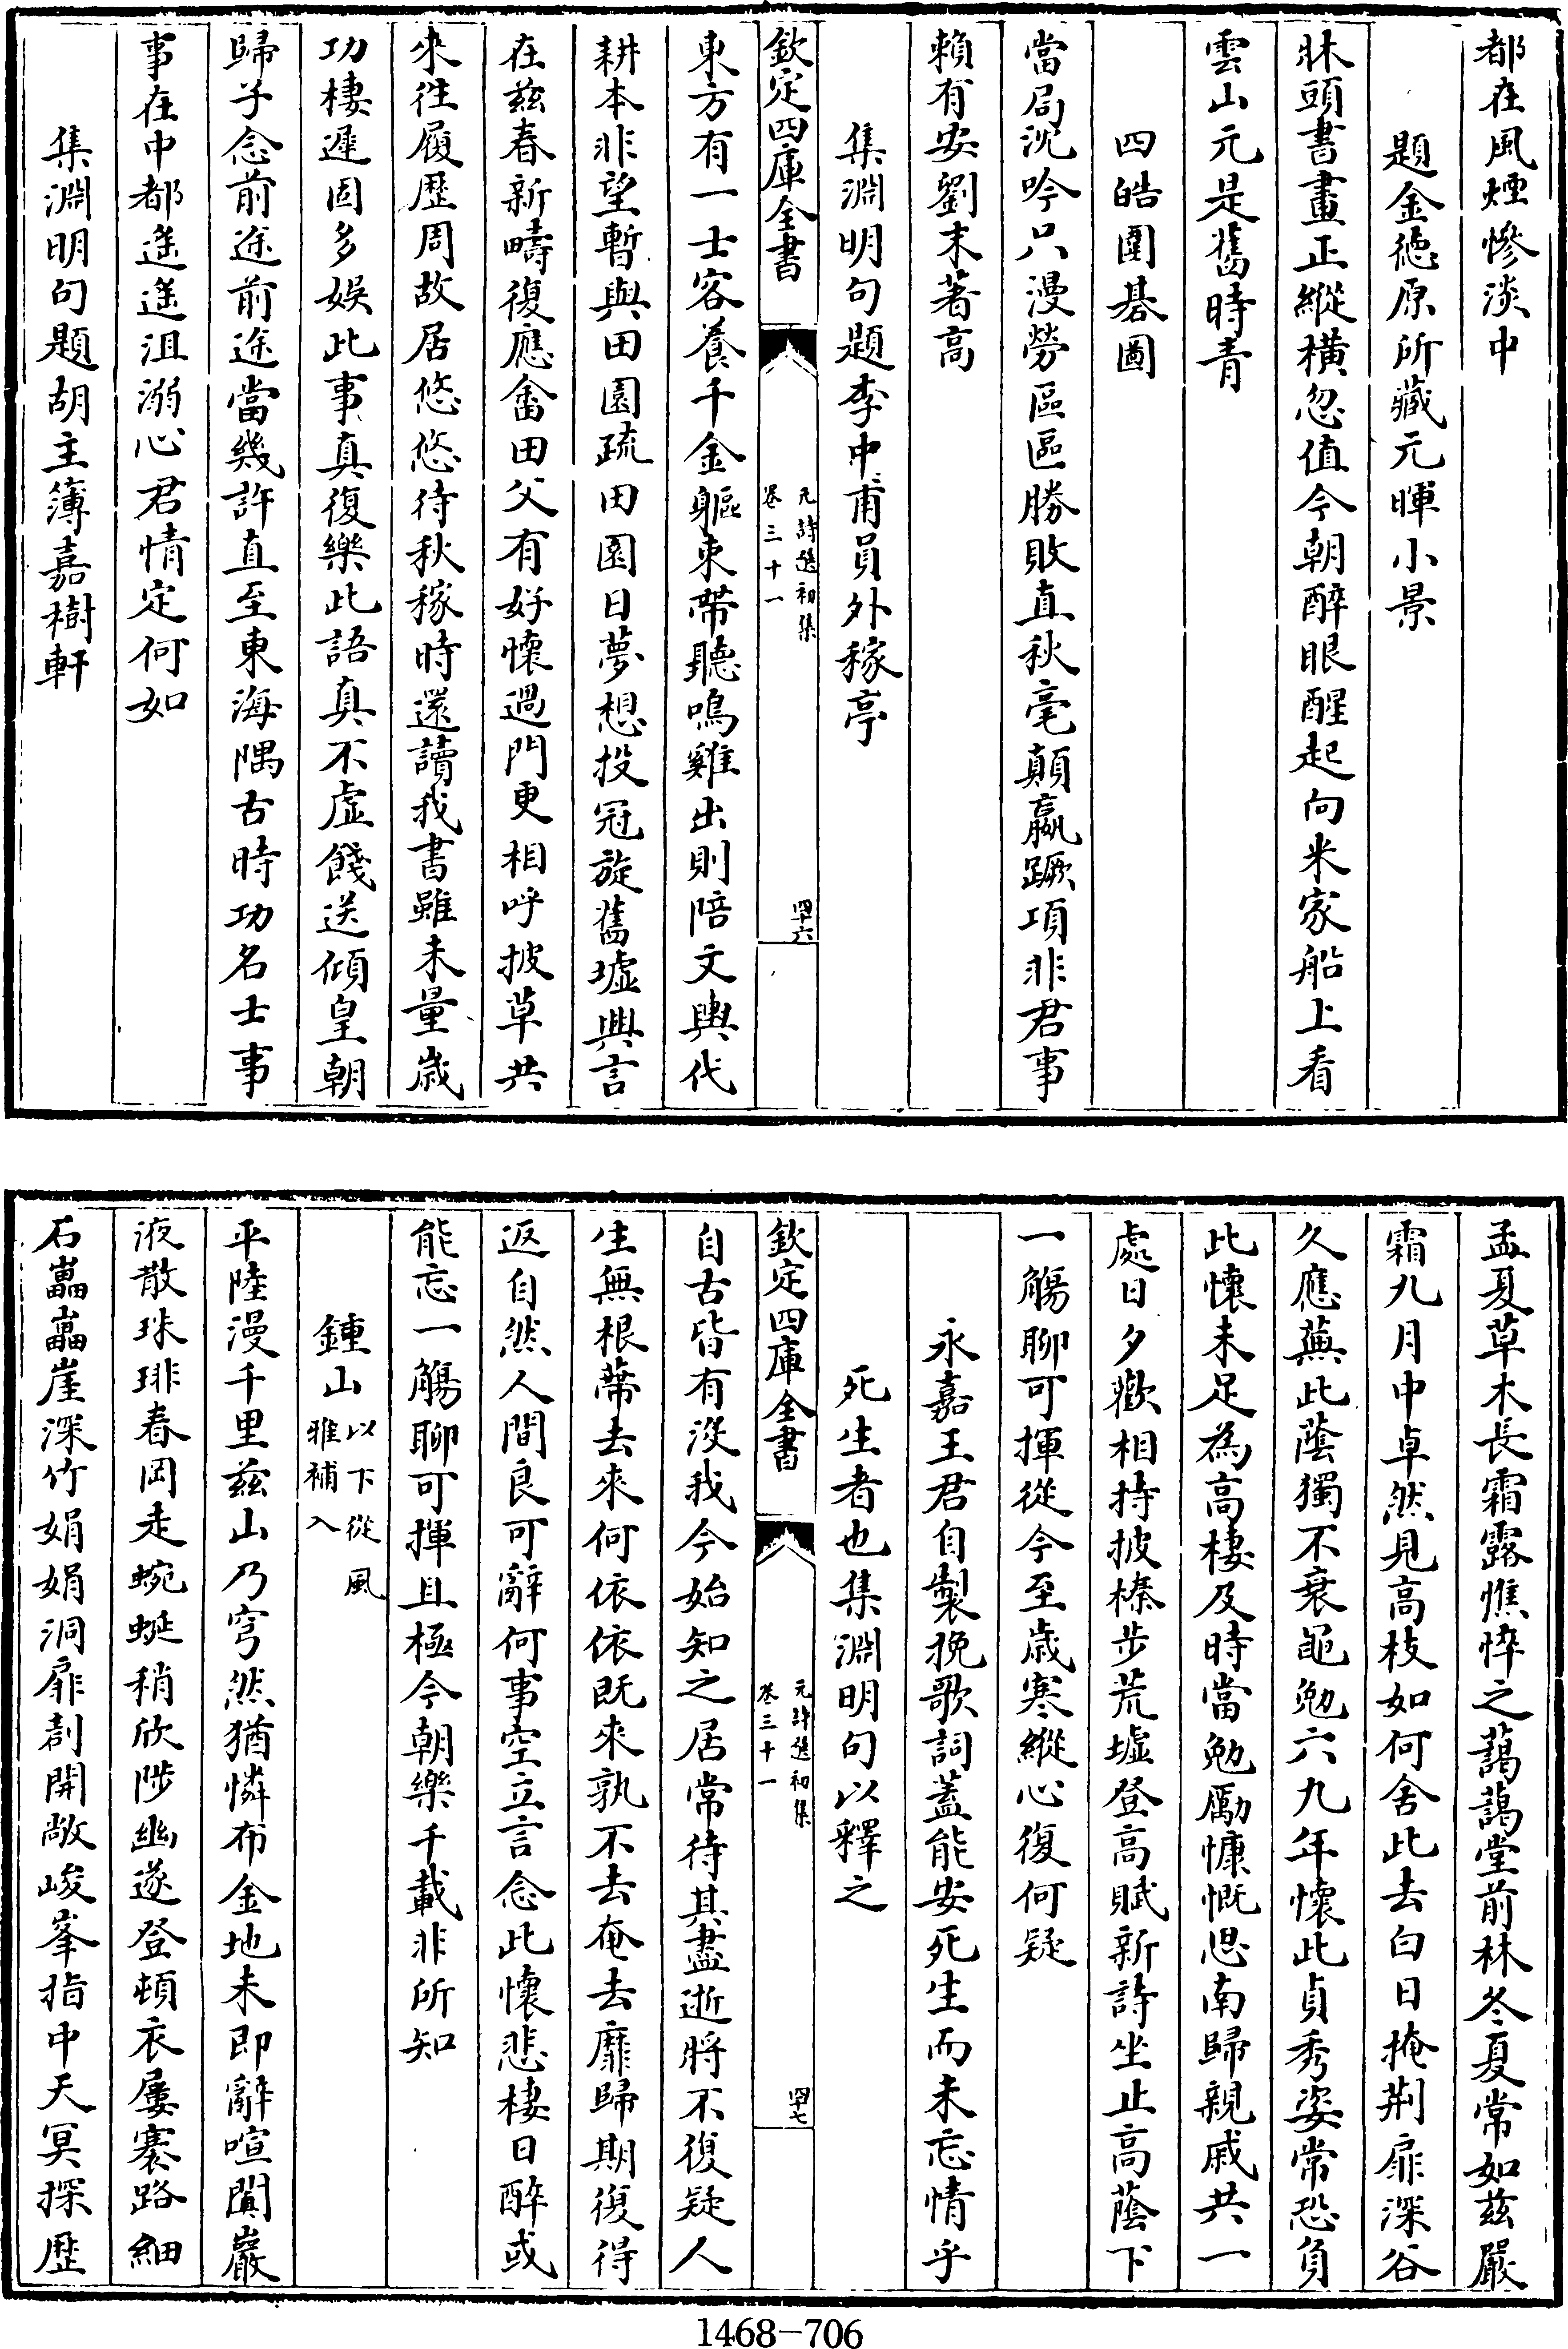 都在風煙慘淡中
題金德原所藏元暉小景
牀頭書畫正縱橫忽值今朝醉眼醒起向米家船上看
雲山元是舊時青
四皓圍碁圖
當局沈吟只漫勞區區勝敗直秋毫顛嬴蹶項非君事
賴有安劉末著高
集淵明句題李中甫員外稼亭
欽定四庫全書
元詩選初集
卷三十一
四十六
東方有一士客養千金軀束帶聽鳴雞出則陪文輿代
耕本非望暫與田園疏田園日夢想投冠旋舊墟興言
在茲春新疇復應畬田父有好懷過門更相呼披草共
來往履歷周故居悠悠待秋稼時還讀我書雖未量歲
功棲遲固多娛此事真復樂此語真不虛餞送傾皇朝
歸子念前途前途當幾許直至東海隅古時功名士事
事在中都遥遥沮溺心君情定何如
集淵明句題胡主簿嘉樹軒
孟夏草木長霜露憔悴之藹藹堂前林冬夏常如茲嚴
霜九月中卓然見高枝如何舍此去白日掩荆扉深谷
久應蕪此蔭獨不衰黽勉六九年懷此貞秀姿常恐負
此懷未足為高棲及時當勉勵慷慨思南歸親戚共一
處日夕歡相持披榛步荒墟登高賦新詩坐止高蔭下
一觴聊可揮從今至歲寒縱心復何疑
永嘉王君自製挽歌詞蓋能安死生而未忘情乎
死生者也集淵明句以釋之
欽定四庫全書
元詩選初集
卷三十一
四十七
自古皆有沒我今始知之居常待其盡逝將不復疑人
生無根蒂去來何依依既來孰不去奄去靡歸期復得
返自然人間良可辭何事空立言念此懷悲棲日醉或
能忘一觴聊可揮且極今朝樂千載非所知
鍾山以下從風雅補入
平陸漫千里茲山乃穹然猶憐布金地未即辭喧闐巖
液散珠琲春岡走蜿蜒稍欣陟幽邃登頓衣屢褰路細
石巑巑崖深竹娟娟洞扉劃開敞峻峯指中天冥探歷